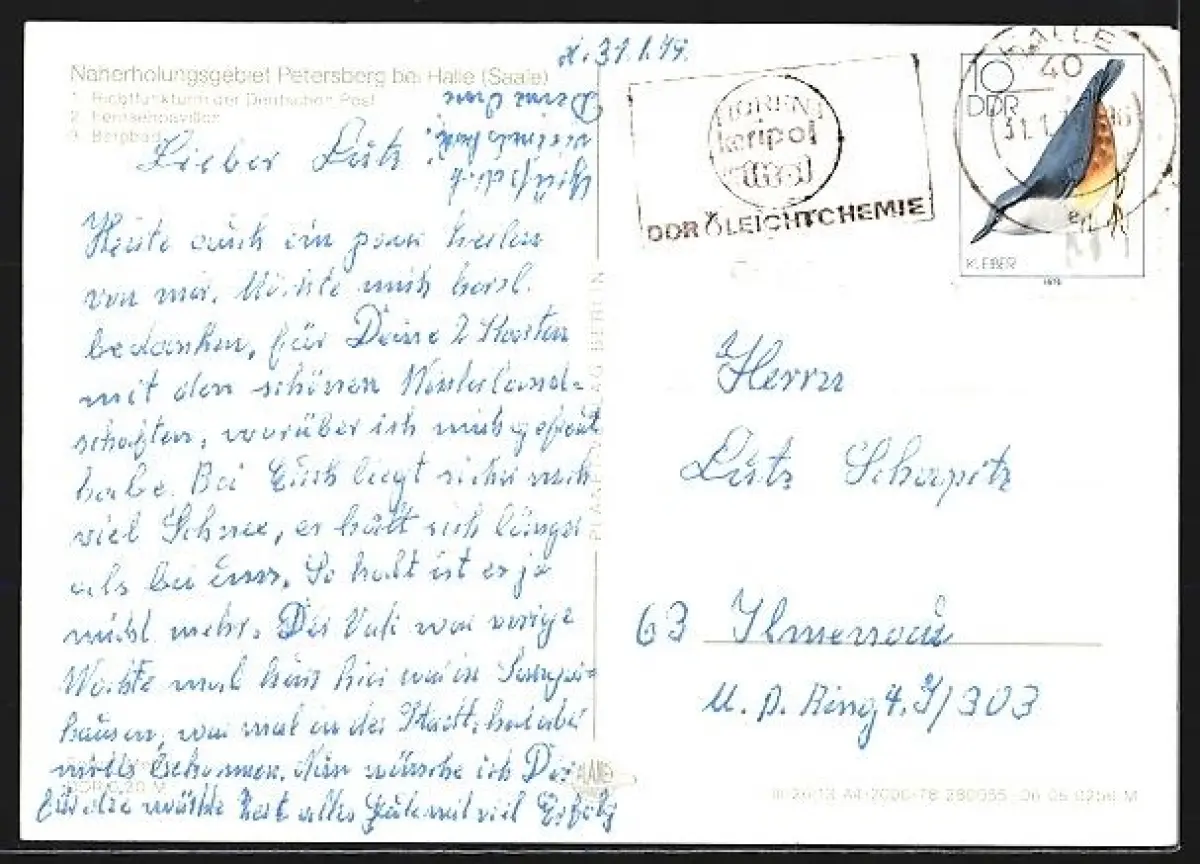 d. 31.1.79.
Naherholungsgebiet Petersberg bei Halle (Saale)
1. Richtfunkturm der Deutschen Post
2. Fernsehpavillon
3. Bergbad
Lieber Lutz!
Heute auch ein paar Zeilen
von mir. Möchte mich herzl.
bedanken, für Deine 2 Karten
mit den schönen Winterland-
schaften, worüber ich mich gefreut
habe. Bei Euch liegt sicher noch
viel Schnee, er hält sich länger
als bei uns. So kalt ist es ja
nicht mehr. Der Vati war vorige
Woche mal
war mal in der Stadt, hat aber
nichts bekommen. Nun wünsche ich Dir
für die nächste Zeit alles Gute und viel Erfolg
Deine Oma
DDR 0,20 M
PLANET-VERLAG BERLIN
PLANET
HALLE
40
31.1.
keripol
DDR LEICHTCHEMIE
10
DDR
KLEIBER
1979
Herrn
Lutz Schapitz
63 Ilmenau
M. P. Ring 4. I/303
III-26-13 A4-2000-78 280055 06 05 0256 M